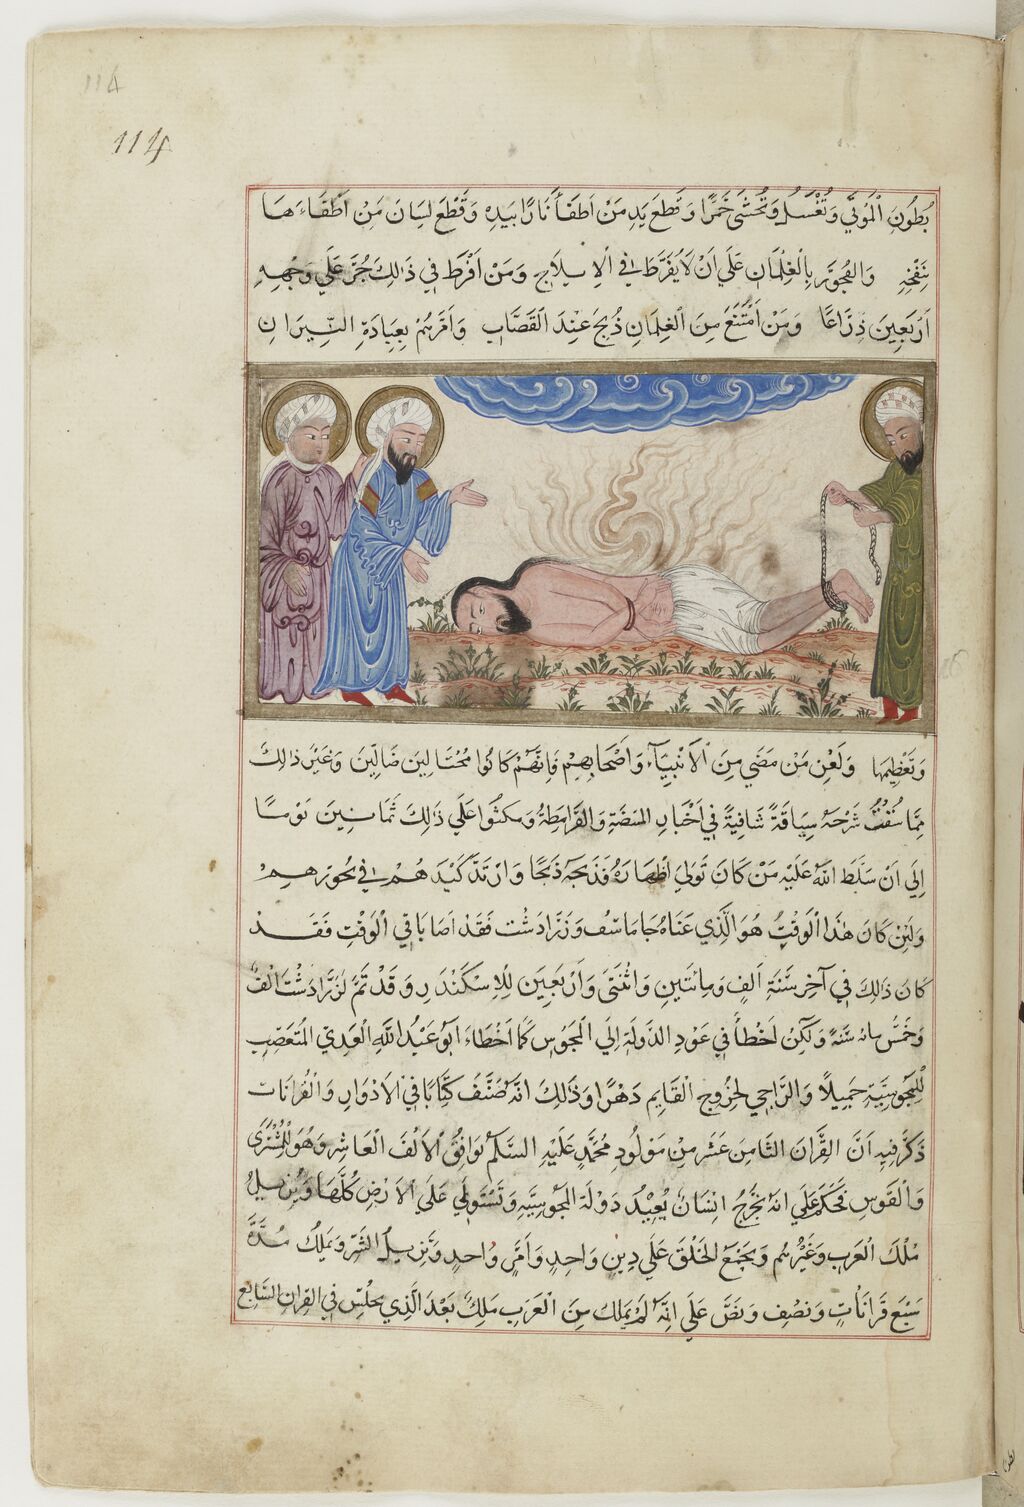 114
114
بُطُونِ اْلمَوْتَي وَتُغْسَلُ وَتُحْشَى خَمْرًا وَقَطْعَ يَدِ مَنْ اَطْفَأَ نَارًا بِيَدِهِ وَقَطْعَ لِسَانَ مَنْ اَطْفَاءَهَا
بِنَفْخِهِ وَالفُجُوْرَ بِالْغِلْمَانِ عَلَي اَنْ لَا يُفَرَّطَ فِي اْلاِيلَاجِ وَمَنْ اَفْرَطَ فِي ذَالِكَ جُرَّ عَلَي وَجْهِهِ
اَرْبَعِينَ ذِرَاعًا وَمَنْ اَمْتَنَعَ مِنَ الْغِلْمَانِ ذُبِحَ عِنْدَ القَصَّابِ وَاَمَرَهُمْ بِعِبَادَةِ النِّيرَانِ
وَتَعْظِيمِهَا وَلَعْنِ مَنْ مَضَي مِنَ اْلاَنْبِيَآءِ وَاَصْحَابِهِمْ فَاِنَّهُمْ كَانُوا مُحْتَالِينَ ضَالِّينَ وَغَيْرَ ذَالِكَ
مِمَّا سُقْتُ شَرْحَهُ سِيَاقَةً شَافِيَةً فِي اَخْبَارِ المُبَيِّضَةِ وَالْقَرَامِطَةِ وَمَكَثُوا عَلَي ذَالِكَ ثَمَانِينَ يَوْمًا
اِلَي اَنْ سَلَّطَ اللهُ عَلَيْهِ مَنْ كَانَ تَوَلَي اِظْهَارَهُ فَذَبَحَهُ ذَبْحًا وَارْتَدَّ كَيْدَهُمْ فِي نُحُورِهِمْ
وَلَئِنْ كَانَ هٰذَا اْلوَقْتُ هُوَ الَّذِي عَنَاهُ جَامَاسْف وَزَرَادَشْت فَقَدْ اَصَابَا فِي اْلوَقْتِ فَقَدْ
كَانَ ذَالِكَ فِي آخِرِ سَنَةِ اَلفٍ وَمِائتَينِ وَاثْنَتَى وَاَرْبَعِينَ لِلْاِسْكَنْدَرِ وَقَدْ تَمَّ لِزَرَادَشْتَ اَلْفٌ
وَخَمْسُ مائه سَنَةٍ وَلَكِنْ اَخْطَأَ فِي عَوْدِ الدَّوْلَةِ اِلَي اْلمَجُوسِ كَمَا اَخْطَاءَ اَبُو عَبْدُ اللهِ اْلعَدِيّ المُتَعَصِّبِ
لِلْمَجُوسِيَّةِ جَمِيلًا وَالرَّاجِي لِخُرُوجِ القَايِمِ دَهْرًا وَذَلِكَ اَنَّهُ صَنَّفَ كِتَابًا فِي اْلاَدْوَارِ وَالْقِرَانَاتِ
ذَكَرَ فِيهِ اَنَّ القِرَانَ الثَّامِنَ عَشَرَ مِنْ مَوْلُودِ مُحَمَّدٍ عَلَيْهِ السَّلَمُ يُوَافِقُ اْلاَلْفَ الْعَاشِرَ وَهُوَ لِلْمُشْتَرَي
وَاْلقَوْسِ فَحَكَمَ عَلَي اَنَّهُ يَخْرُجُ اِنْسَانٌ يُعِيْدُ دَوْلَةَ المَجُوسِيَّهِ وَتَسْتَوْلِي عَلَي اْلاَرْضِ كُلَّهَا وَيُزِيلُ
مُلْكَ الْعَرَبِ وَغَيْرِهِمْ وَيَجْمَعُ الخَلْقَ عَلَي دِينٍ وَاحِدٍ وَاَمْرٍ وَاحِدٍ وَيُزِيلُ الشَّرَّ وَيَمْلِكُ مُدَّةَ
سَبْعَ قِرَانَاتٍ وَنصْفِ وَنَصَّ عَلَي اِنَّهُ لَمْ يَمْلِك مِنَ الْعَرَبِ مَلِكٌ بَعْدَ الَّذِي يَجْلِسُ فِي القِرَانِ السَّابِع